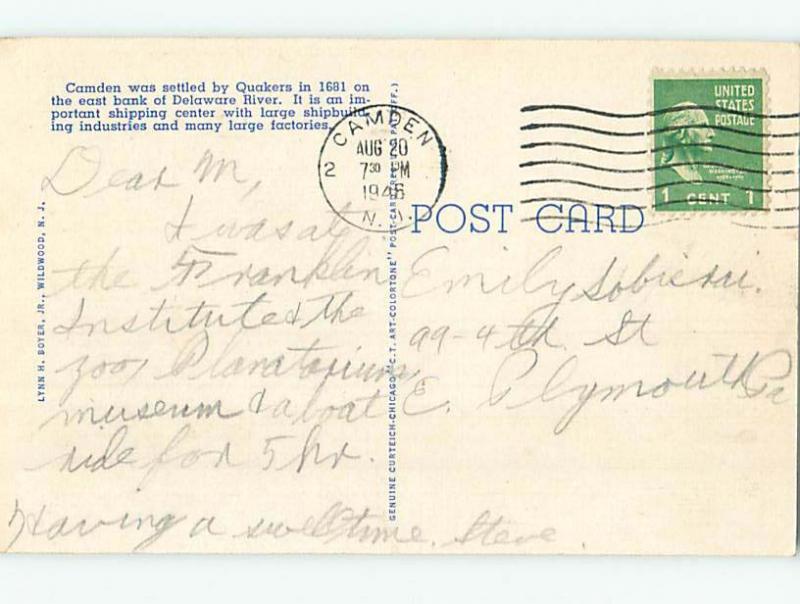 Camden was settled by Quakers in 1681 on
the east bank of Delaware River. It is an im-
portant shipping center with large shipbuild-
ing industries and many large factories.
CAMDEN
AUG 20
2 7 30 PM
1946
N. J.
UNITED
STATES
POSTAGE
1 CENT 1
POST CARD
LYNN H. BOYER, JR., WILDWOOD, N. J.
GENUINE CURTEICH-CHICAGO "C.T. ART-COLORTONE" POST CARD
Dear M,
I was at
the Franklin
Institute & the
zoo, Planatarium,
museum & a boat
ride for 5 hr.
Having a swell time. Steve.
Emily
99-4th St
E. Plymouth Pa